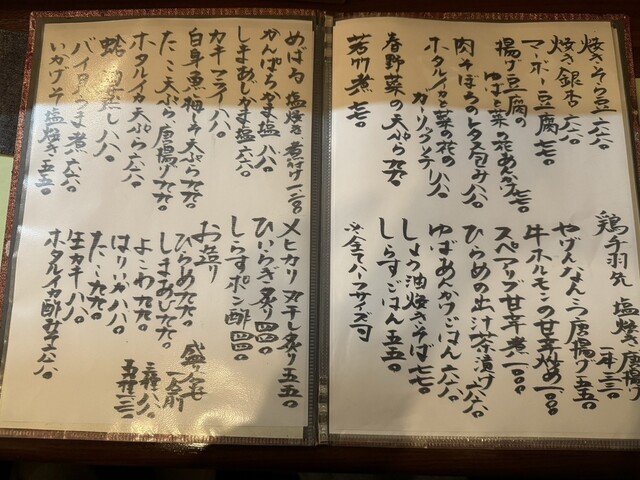 焼きそら豆 六六〇
焼き銀杏 六六〇
マーボー豆腐 七七〇
揚げ豆腐の
ゆばと菜の花あんかけ 七七〇
肉そぼろのレタス包み 八八〇
ホタルイカと菜の花の
ガーリックソテー 八八〇
春野菜の天ぷら 九九〇
若竹煮 七七〇
鶏手羽先 塩焼き 唐揚げ
一本 二三〇
やげんなんこつ唐揚げ 五五〇
牛ホルモンの甘辛炒め 一一〇〇
スペアリブ甘辛煮 一一〇〇
ひらめの出汁茶漬け 六六〇
ゆばあんかけごはん 六六〇
しょう油焼きそば 七七〇
しらすごはん 五五〇
※全てハーフサイズ可
めばる 塩焼き 煮付け 一三二〇
かんぱちかま塩 八八〇
しまあじかま塩 六六〇
カキフライ 八八〇
白身魚梅しそ天ぷら 九九〇
たこ天ぷら、唐揚げ 九九〇
ホタルイカ天ぷら 六六〇
蛤 酒蒸し 八八〇
バイ貝うま煮 六六〇
いかげそ塩焼き 五五〇
メヒカリ丸干し炙り 五五〇
ひいらぎ炙り 四四〇
しらすポン酢 四四〇
お造り
ひらめ 九九〇
しまあじ 九九〇
よこわ 九九〇
はりいか 八八〇
たこ 九九〇
生カキ 八八〇
ホタルイカ酢みそ 六六〇
盛り合せ
一人前
三種 一一八〇